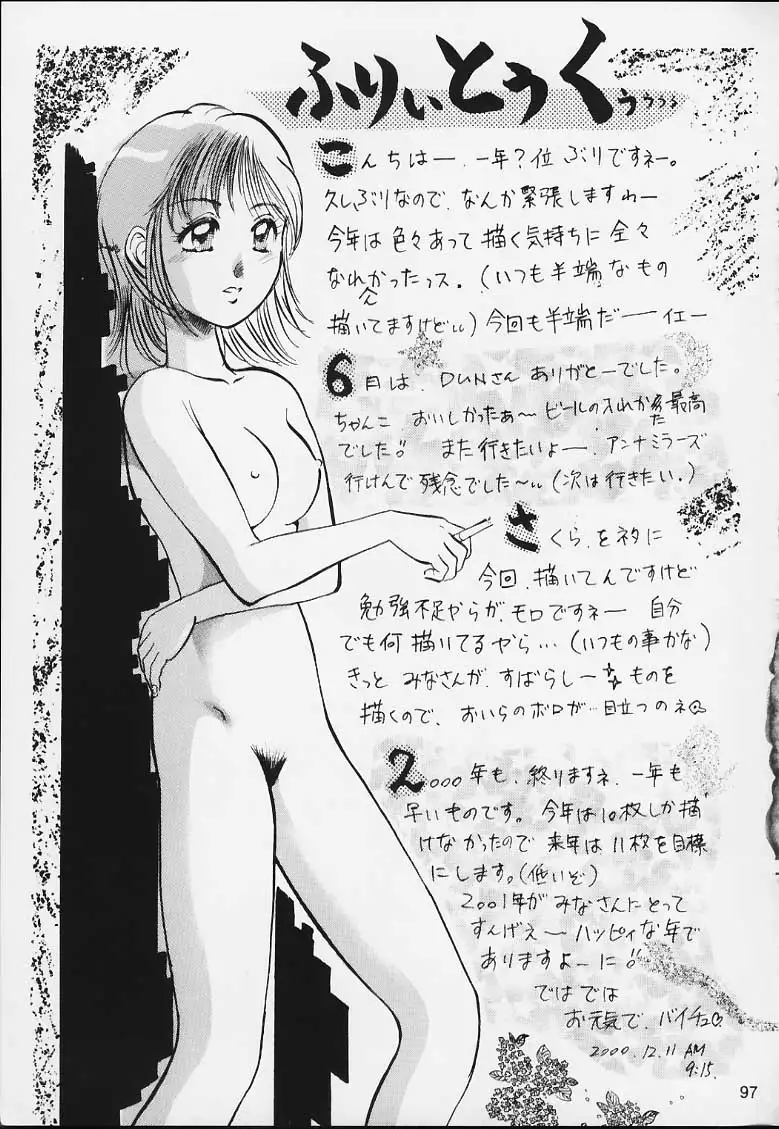 ふりぃとうくぅぅぅぅ
こんちはー、一年?位ぶりですネー。
久しぶりなので、なんか緊張しますわー
今年は色々あって描く気持ちに全々
なれなかったっス。(いつも半端なもの
描いてますけど…)今回も半端だーーイエー
6月は、DUNさんありがとーでした。
ちゃんこおいしかったぁ〜ビールの入れかた最高
でした!! また行きたいよー、アンナミラーズ
行けんで残念でした〜…(次は行きたい。)
さくら、をネタに
今回、描いてんですけど
勉強不足やらが、モロですネー 自分
でも何描いてるやら…(いつもの事かな)
きっとみなさんが、すばらしーものを
描くので、おいらのボロが…目立つのネ
2000年も、終りますネ、一年も
早いものです。今年は10枚しか描
けなかったので来年は11枚を目標
にします。(低いぞ)
2001年がみなさんにとって
すんげえ〜ハッピィな年で
ありますよーに!!
ではでは
お元気で、バイチュ♡
2000.12.11 AM
9:15.
97